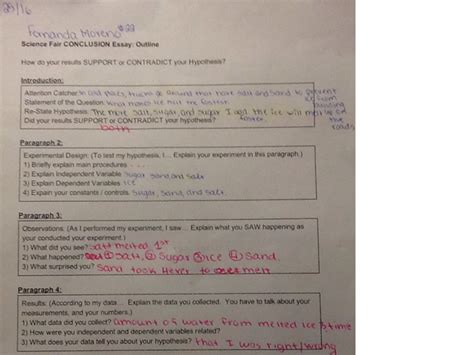 29/16
Fernanda Moreno #22
Science Fair CONCLUSION Essay: Outline
How do your results SUPPORT or CONTRADICT your Hypothesis?
Introduction:
Attention Catcher: places, trucks go around that have salt and sand to prevent
ice from
Statement of the Question: What makes ice melt the fastest
Re-State Hypothesis: The more salt, sugar, and sugar I add the ice will melt
Did your results SUPPORT or CONTRADICT your hypothesis? faster.
the roads.
both
Paragraph 2:
Experimental Design: (To test my hypothesis, I... Explain your experiment in this paragraph.)
1) Briefly explain main procedures
2) Explain Independent Variable sugar, sand, and salt
3) Explain Dependent Variables ice
4) Explain your constants / controls sugar, sand, and salt.
Paragraph 3:
Observations: (As I performed my experiment, I saw... Explain what you SAW happening as
your conducted your experiment.)
1) What did you see? salt melted 1st
2) What happened? ① Salt, ② Sugar ③ ice ④ Sand.
3) What surprised you? Sand took 4ever to melt
Paragraph 4:
Results: (According to my data... Explain the data you collected. You have to talk about your
measurements, and your numbers.)
1) What data did you collect? amount of water from melted ice & time
2) How were you independent and dependent variables related?
3) What does your data tell you about your hypothesis? that I was right/wrong